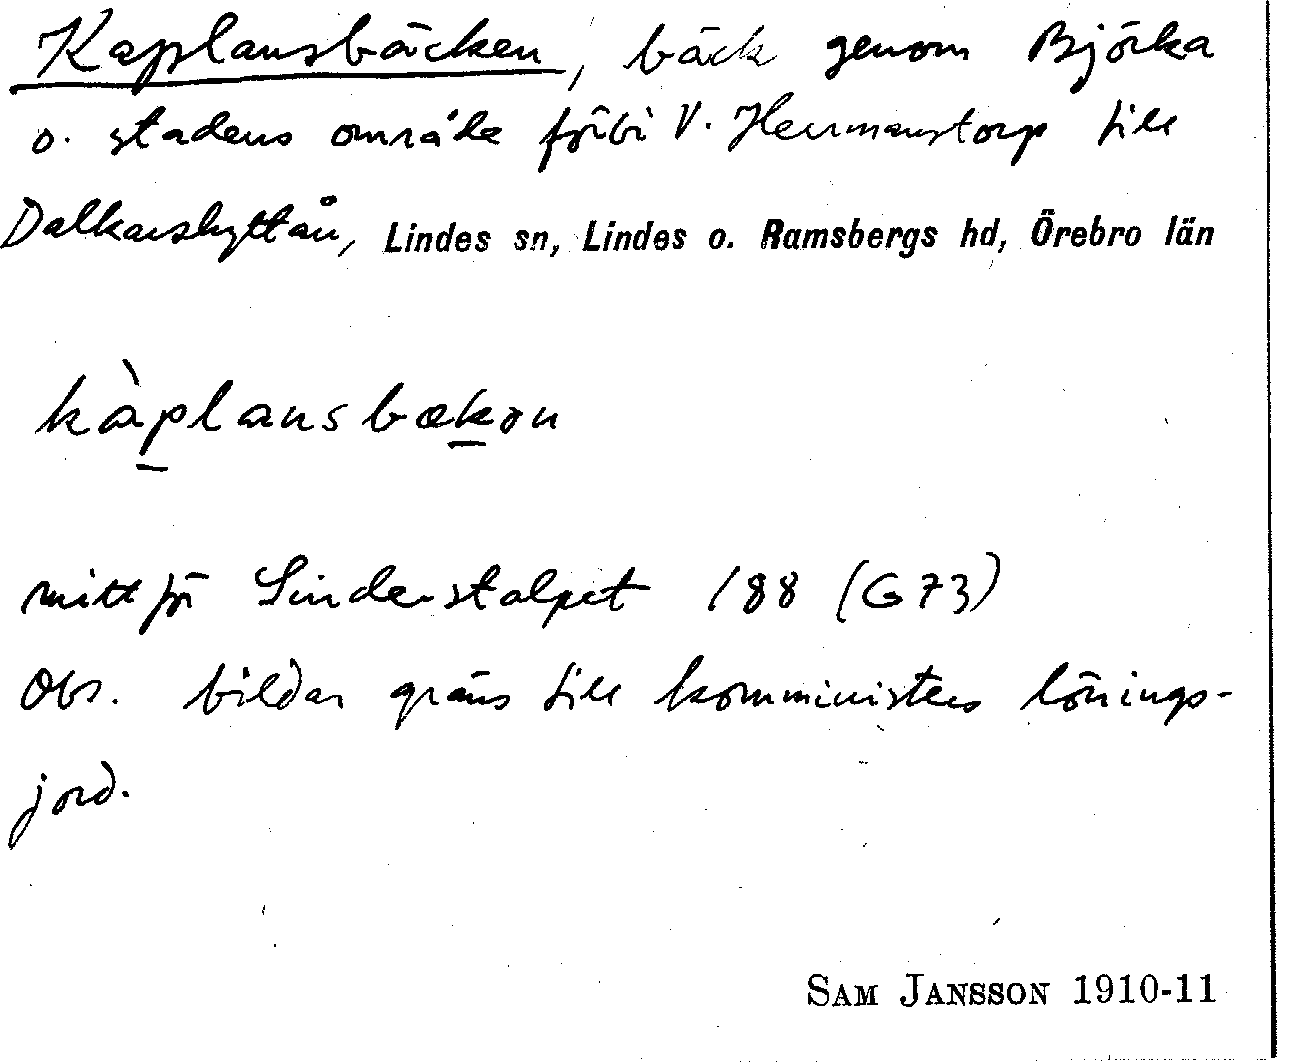 Kaplansbäcken, bäck genom Björka
o. stadens område förbi V. Hermanstorp till
Dalkarshyttån, Lindes sn, Lindes o. Ramsbergs hd, Örebro län
kàplansbækən
mitt för Lindestolpet 188 (G73)
Obs. bildar gräns till komministers lönings-
jord.
SAM JANSSON 1910-11